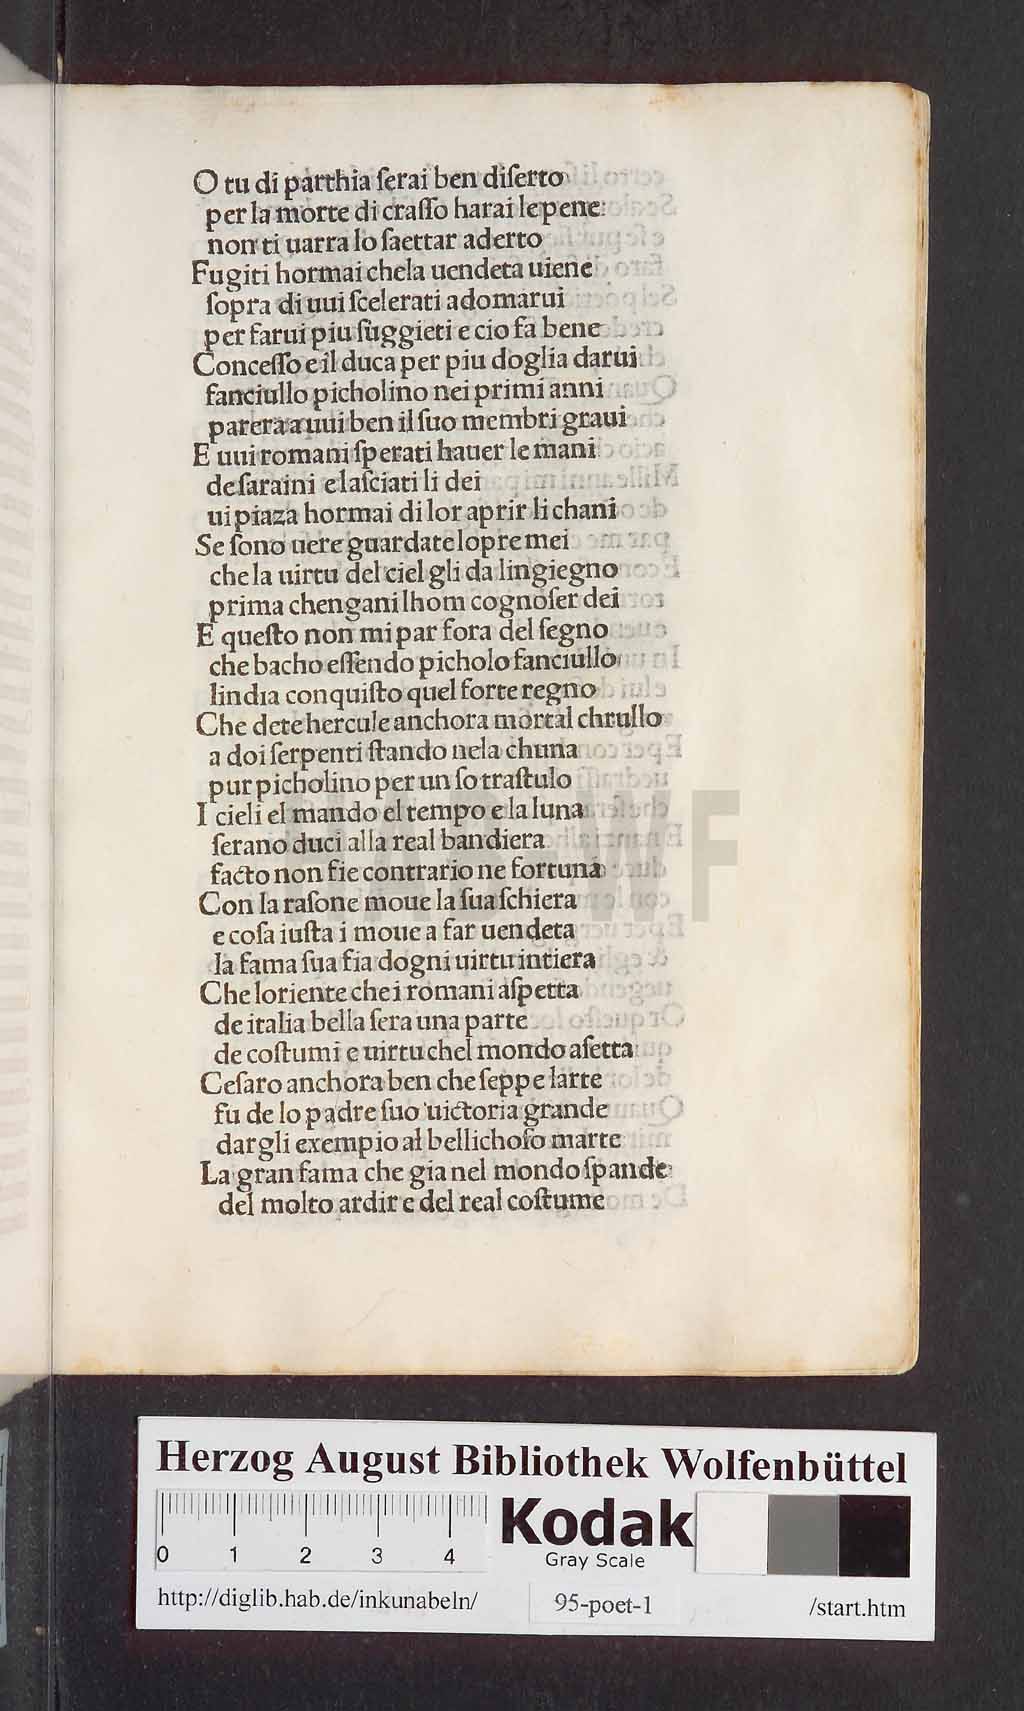 O tu di parthia ſerai ben diſerto
per la morte di craſſo harai le pene
non ti uarra lo ſaettar aderto
Fugiti hormai che la uendeta uiene
ſopra di uui ſcelerati a domarui
per farui piu ſuggieti e cio fa bene
Conceſſo e il duca per piu doglia darui
fanciullo picholino nei primi anni
parera a uui ben il ſuo membri graui
E uui romani ſperati hauer le mani
de ſaraini e laſciati li dei
ui piaza hormai di lor aprir li chani
Se ſono uere guardate lopre mei
che la uirtu del ciel gli da lingiegno
prima chengani lhom cognoſer dei
E queſto non mi par fora del ſegno
che bacho eſſendo picholo fanciullo
lindia conquiſto quel forte regno
Che dete hercule anchora mortal chrullo
a doi ſerpenti ſtando nela chuna
pur picholino per un ſo traſtulo
I cieli el mando el tempo e la luna
ſerano duci alla real bandiera
facto non fie contrario ne fortuna
Con la raſone moue la ſua ſchiera
e coſa iuſta i moue a far uendeta
la fama ſua fia dogni uirtu intiera
Che loriente che i romani aſpetta
de italia bella ſera una parte
de coſtumi e uirtu chel mondo aſetta
Ceſaro anchora ben che ſeppe larte
fu de lo padre ſuo uictoria grande
dar gli exempio al bellichoſo marte
La gran fama che gia nel mondo ſpande
del molto ardir e del real coſtume
HAB-WF
Herzog August Bibliothek Wolfenbüttel
0 1 2 3 4
Kodak
Gray Scale
http://diglib.hab.de/inkunabeln/ 95-poet-1 /start.htm